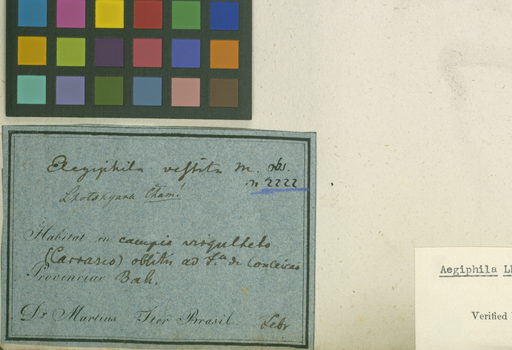 Aegiphila vestita M. Obs.
n 2222
Lhotskyana Cham!
Habitat in campis
(Carrasco) ad de
Provinciae Bah.
Dr Martius Iter Brasil. Febr
Aegiphila Lh
Verified